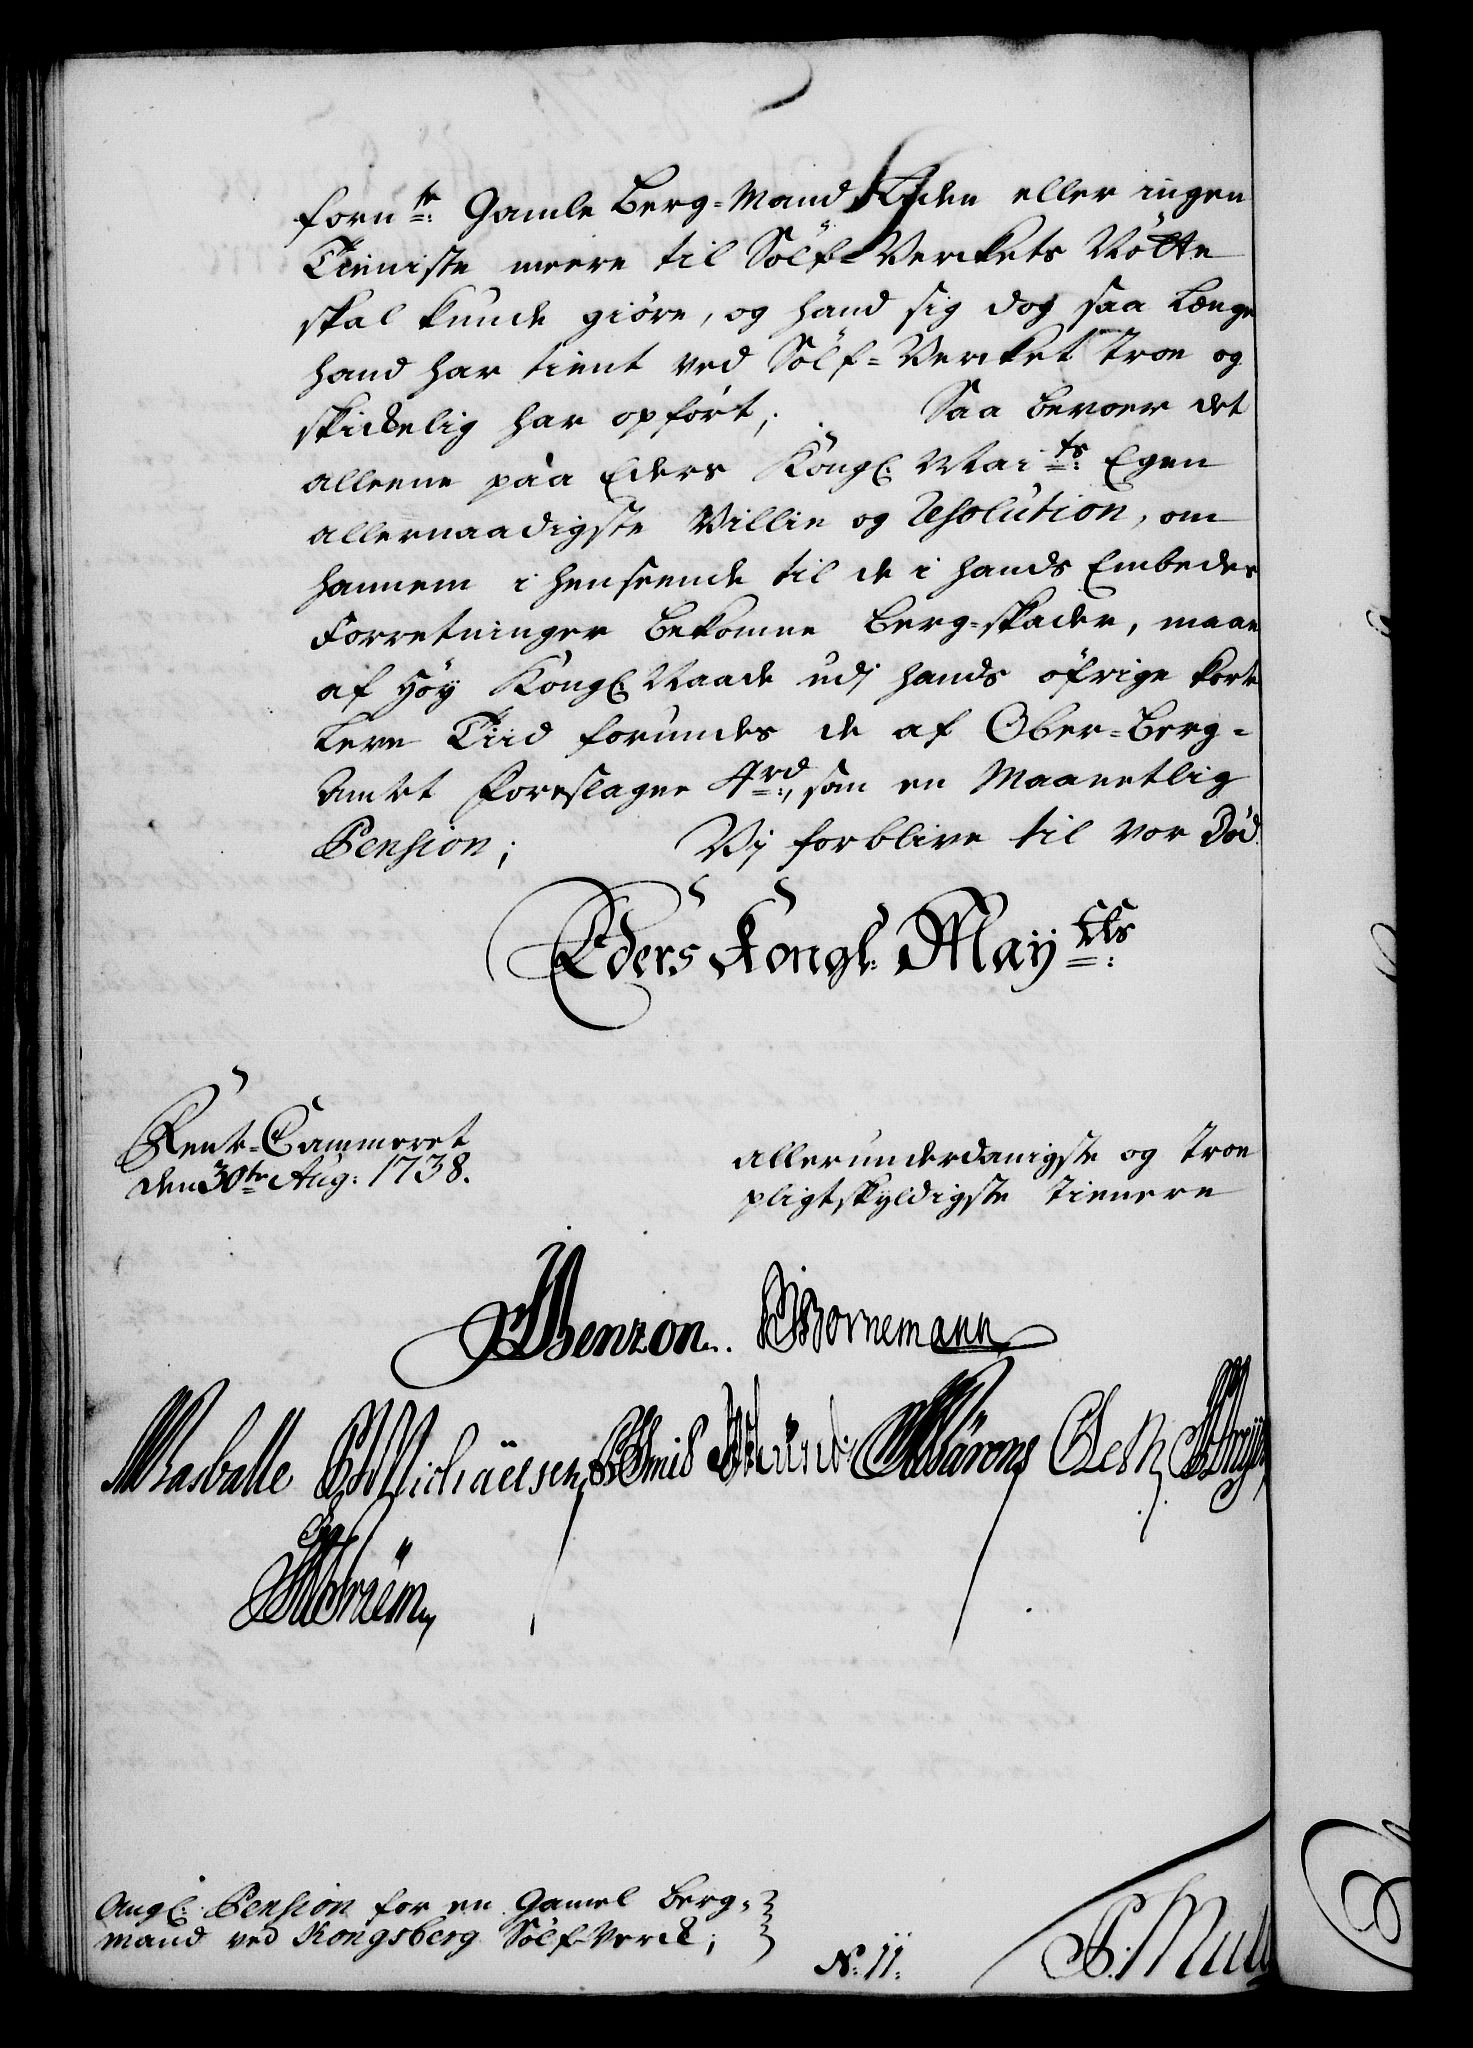 forn te: Gamle Berg-Mand liden eller ingen
Tieniste meere til Sölf-Verckets Nötte
skal kunde giöre, og hand sig dog saa længe
hand har tient ved Sölf-Vercket troe og
skickelig har opfört; Saa beroer det
alleene paa Eders Kongl: Mai ts: Egen
allernaadigste Villie og Resolution, om
hannem i henseende til de i hands Embedes
Forretninger bekomne Berg-skader, maae
af Höy Kongl: Naade udj hands öfrige korte
leve Tiid forundes de af Ober-Berg-
Amtet foreslagne 4 rd:, som en Maanetlig
Pension; Vj forblive til vor Död
Eders Kongl: May tts:
Rente-Cammeret
den 30te Aug: 1738.
allerunderdanigste og troe
pligtskyldigste tienere
Benzon. Bornemann
Rasballe Michäelsen Smid Wärens Oeth
Ström
Angl: Pension for en Gamel Berg-
mand ved Kongsberg Sölf-Verck;
N: 11:
P: Mull